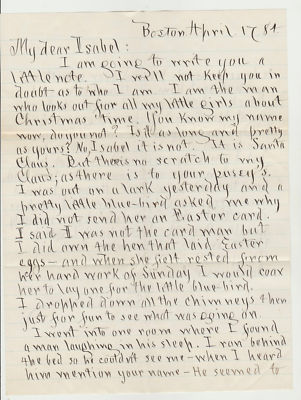 Boston April 17 84
My dear Isabel:
I am going to write you a
little note. I will not keep you in
doubt as to who I am. I am the man
who looks out for all my little girls about
Christmas time. You know my name
now, do you not? Is it as long and pretty
as yours? No, Isabel it is not. It is Santa
Claus. But there is no scratch to my
Claus, as there is to your pusey's.
I was out on a lark yesterday and a
pretty little blue-bird asked me why
I did not send her an Easter card.
I said I was not the card man but
I did own the hen that laid Easter
eggs - and when she felt rested from
her hard work of Sunday I would coax
her to lay one for the little blue-bird.
I dropped down all the chimneys then
just for fun to see what was going on.
I went into one room where I found
a man laughing in his sleep. I ran behind
the bed so he couldn't see me - when I heard
him mention your name - He seemed to